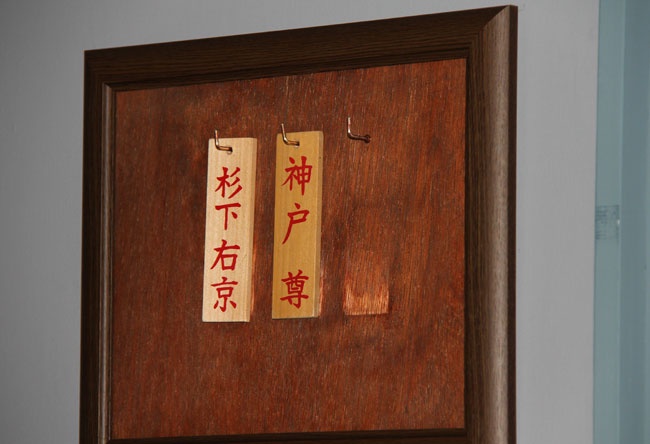 杉下右京
神戸 尊